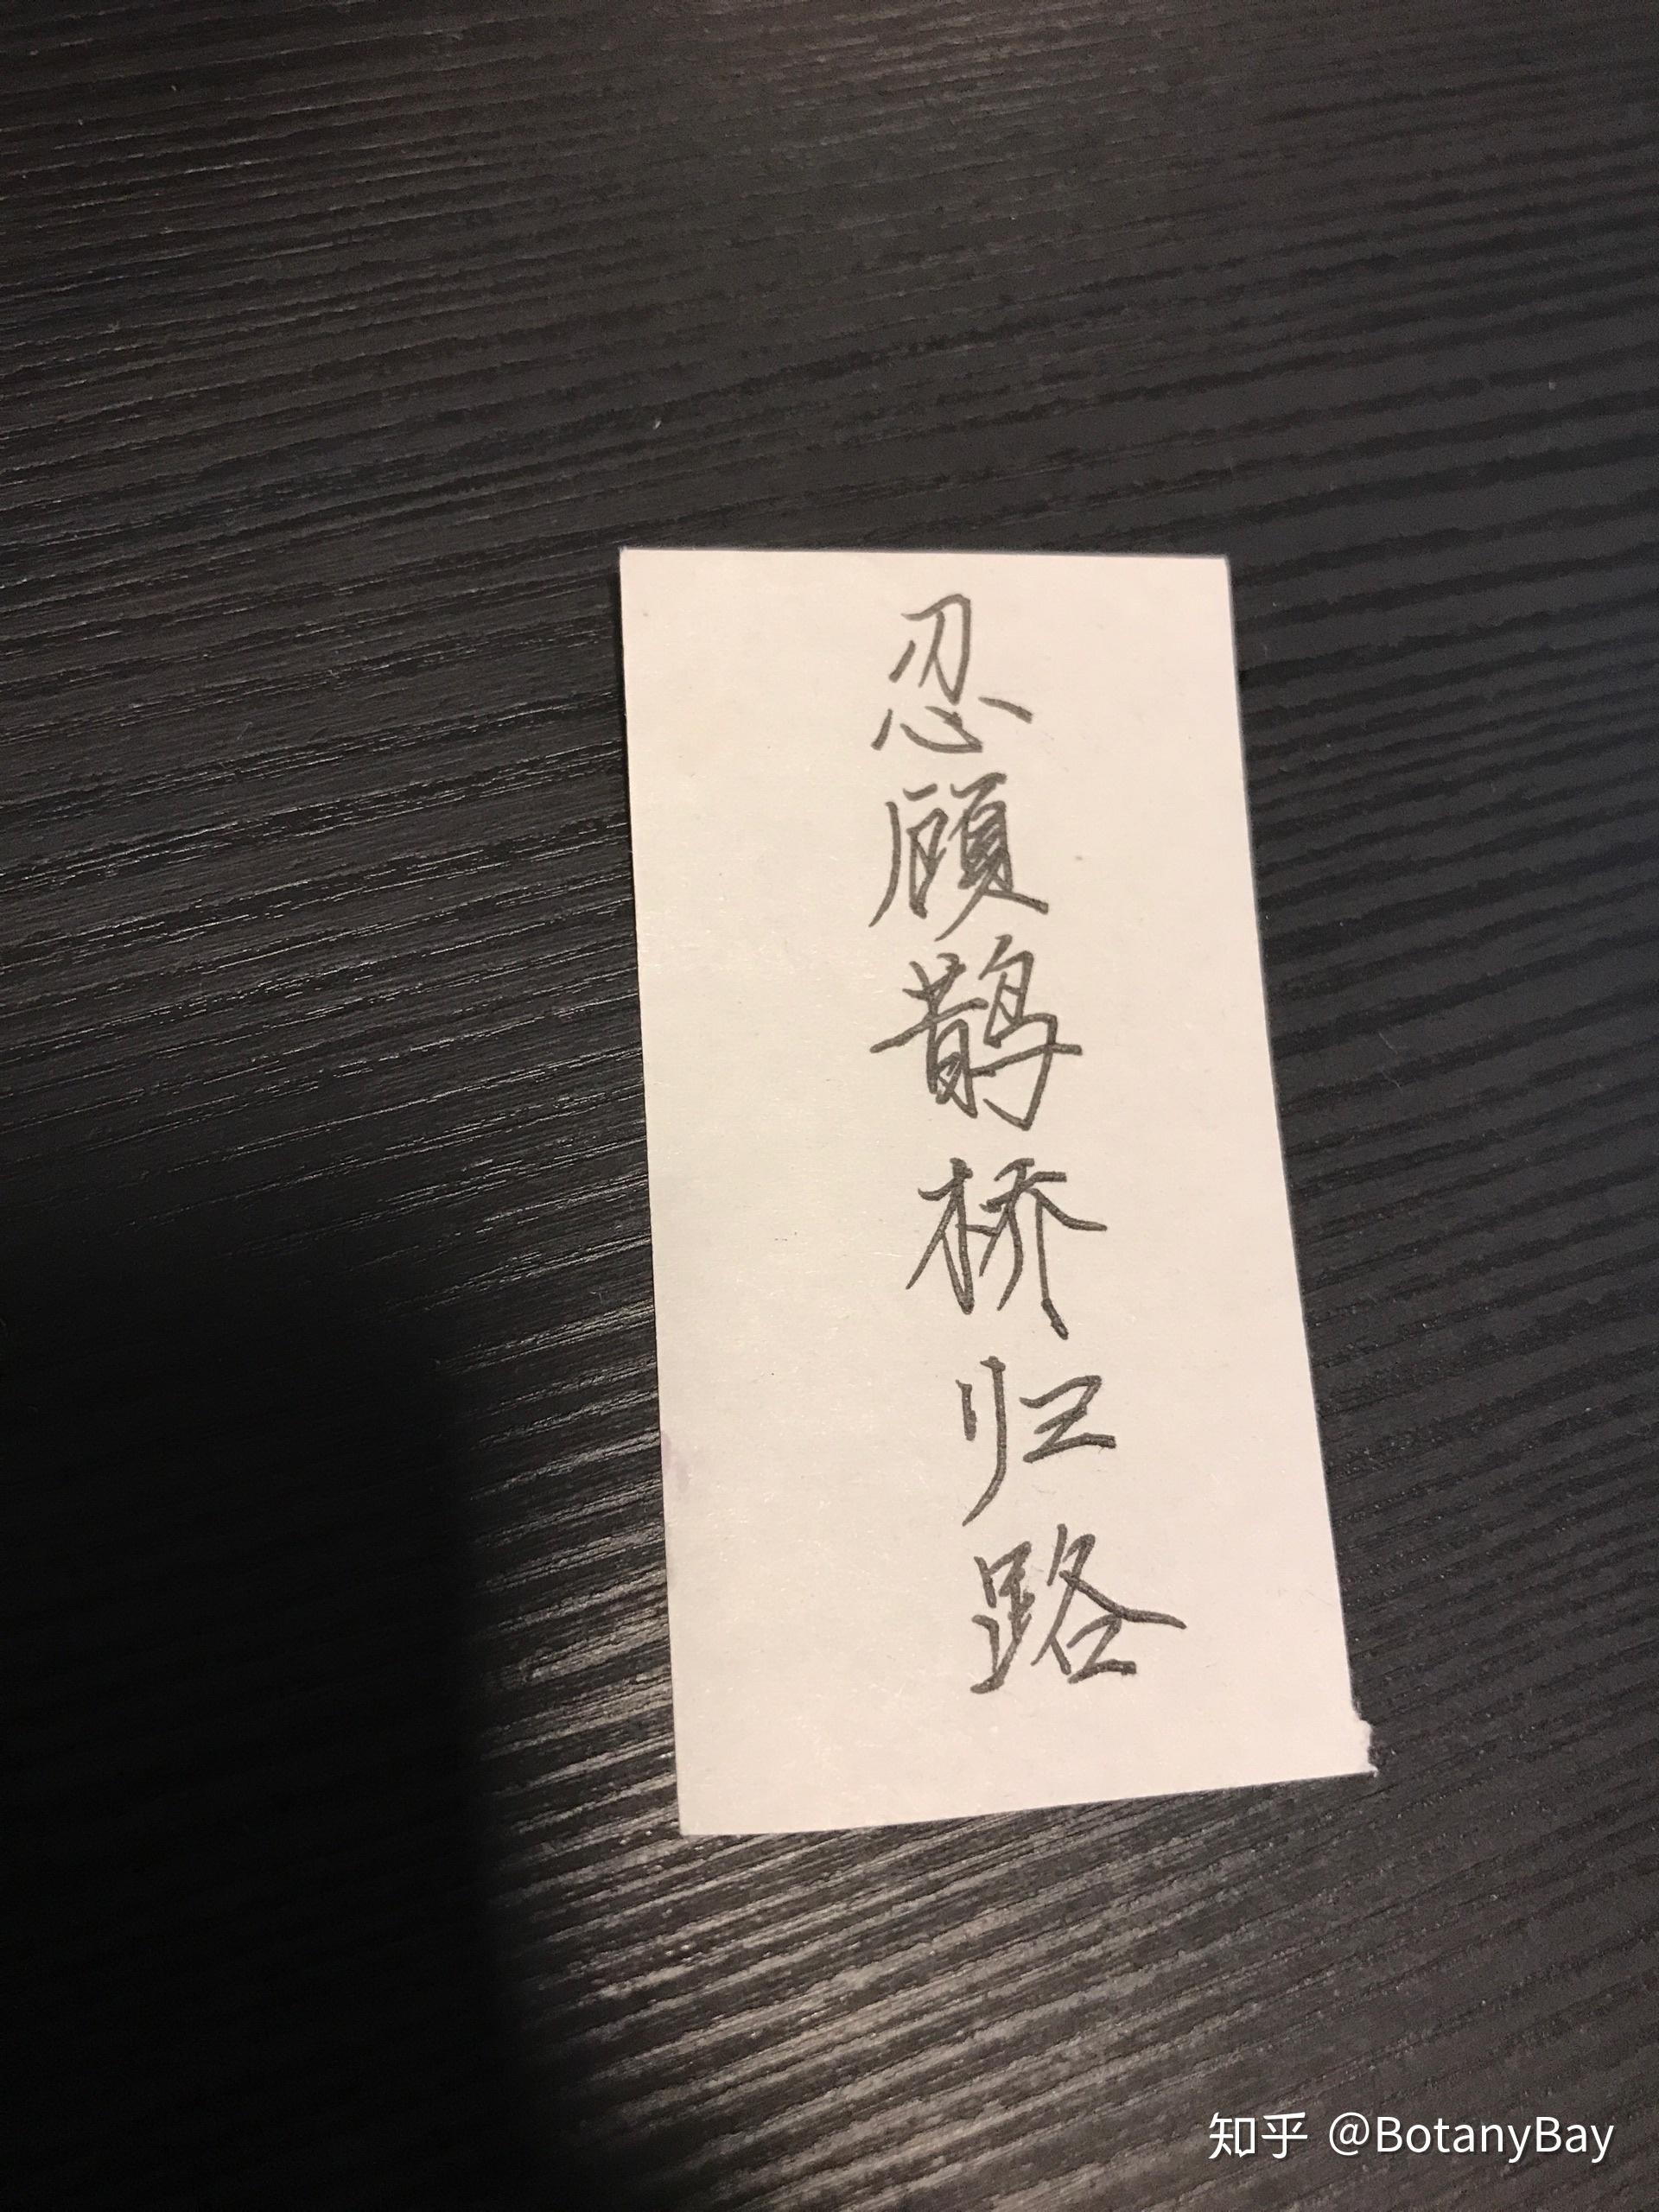 忍顾鹊桥归路
知乎 @BotanyBay